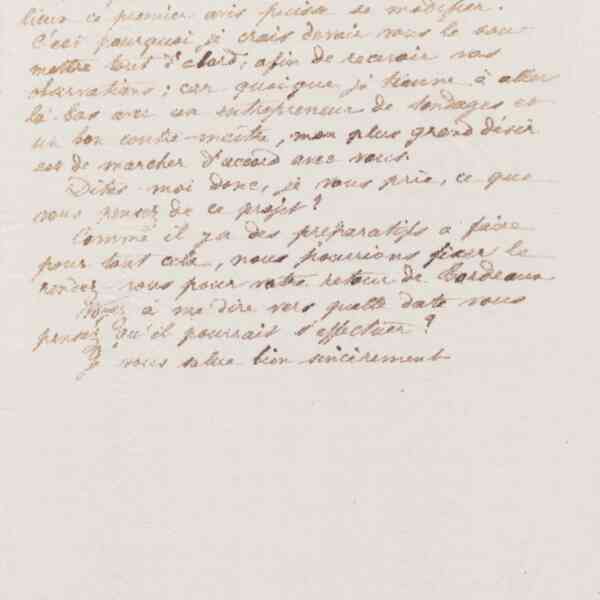 lieux ce premier avis puisse se modifier.
C'est pourquoi je crois devoir vous le sou-
mettre tout d'abord, afin de recevoir vos
observations; car quoique je tienne à aller
là-bas avec un entrepreneur de sondages et
un bon contre-maître, mon plus grand désir
est de marcher d'accord avec vous.
Dites-moi donc, je vous prie, ce que
vous pensez de ce projet?
Comme il y a des préparatifs à faire
pour tout cela, nous pourrions fixer le
rendez-vous pour votre retour de Bordeaux
à me dire vers quelle date vous
pensez qu'il pourrait s'effectuer?
Je vous salue bien sincèrement